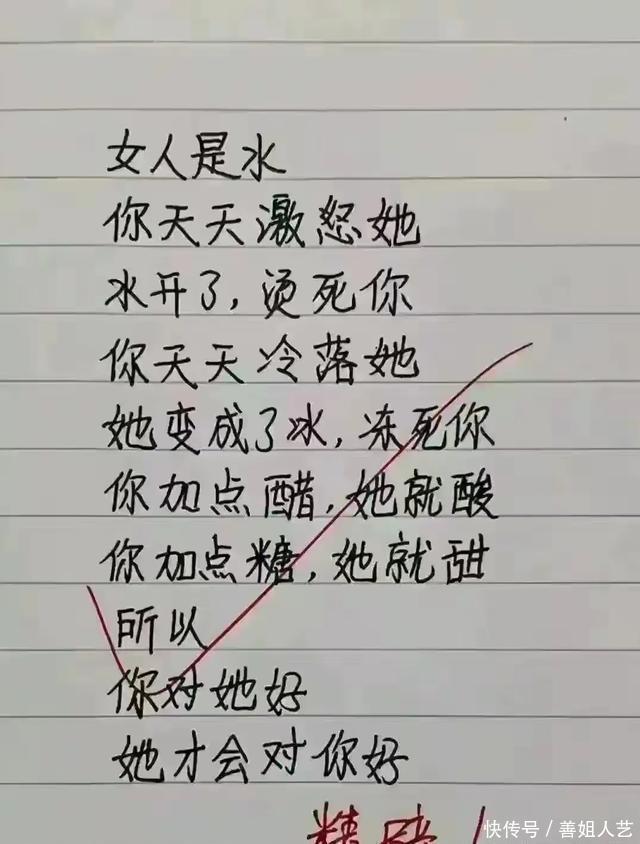 女人是水
你天天激怒她
水开了,烫死你
你天天冷落她
她变成了冰,冻死你
你加点醋,她就酸
你加点糖,她就甜
所以
你对她好
她才会对你好
快传号/善姐人艺